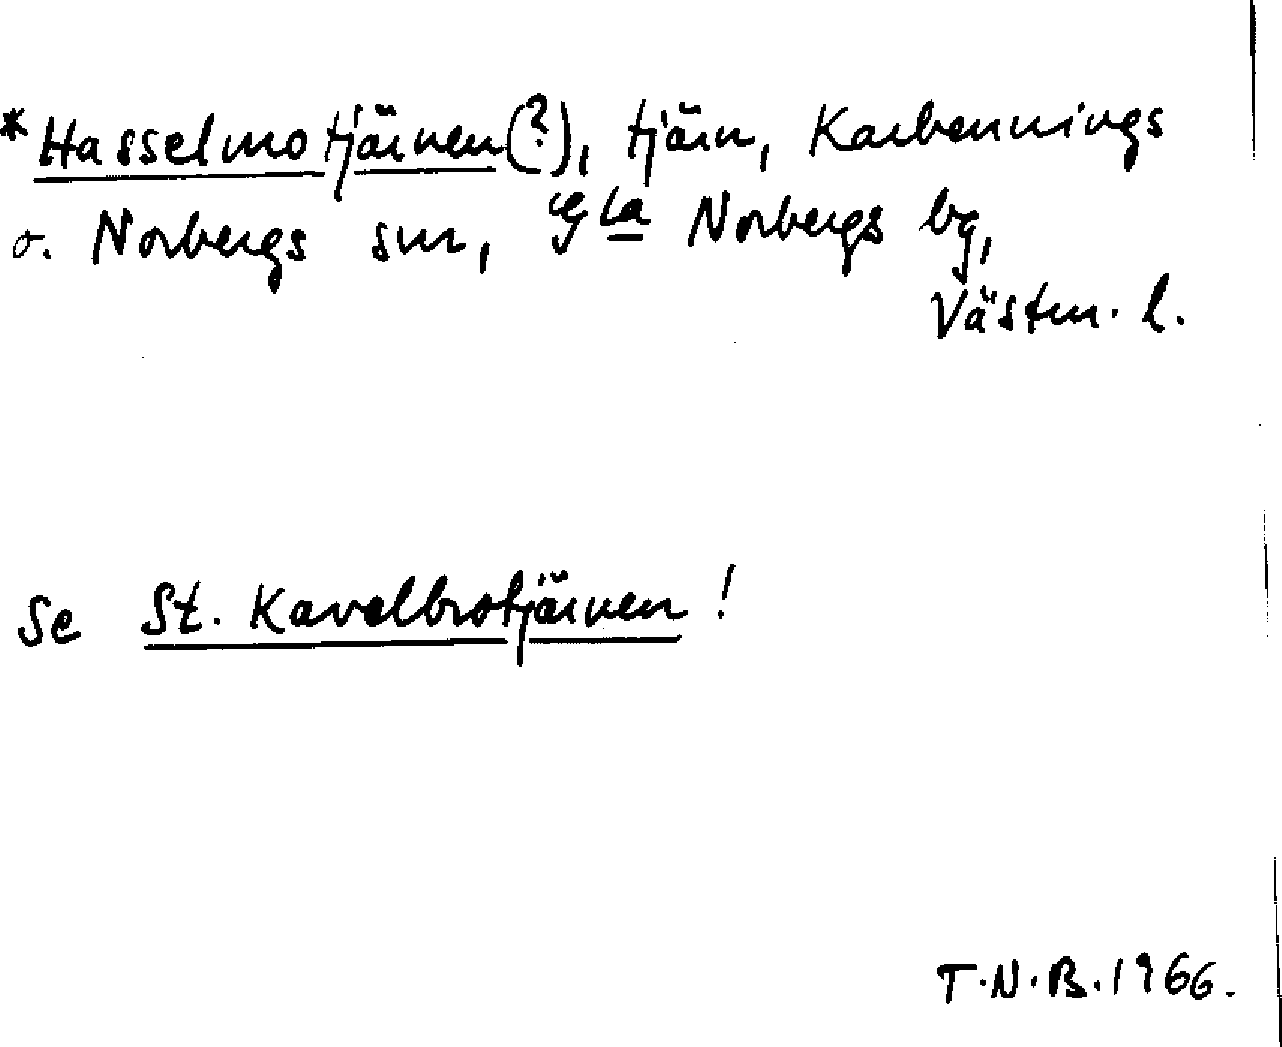 *Hasselmotjärnen(?), tjärn, Karbennings
o. Norbergs snr, Gla Norbergs bg,
Västm. l.
Se St. Kavelbrotjärnen!
T.N.B. 1966.